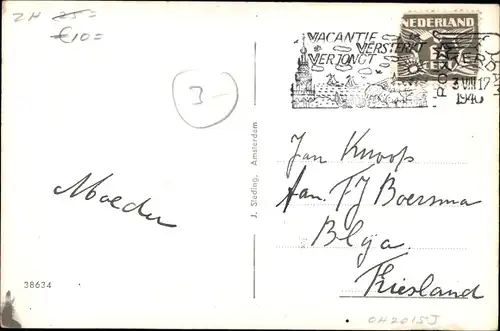 ZH 25=
€10=
3-
VACANTIE
VERSTERKT
VERJONGT
NEDERLAND
3 VIII 17
1940
Jan Knoop
Aan. FJ Boersma
Blija.
Friesland
Moeder
J. Sleding, Amsterdam
38634
OH2015J